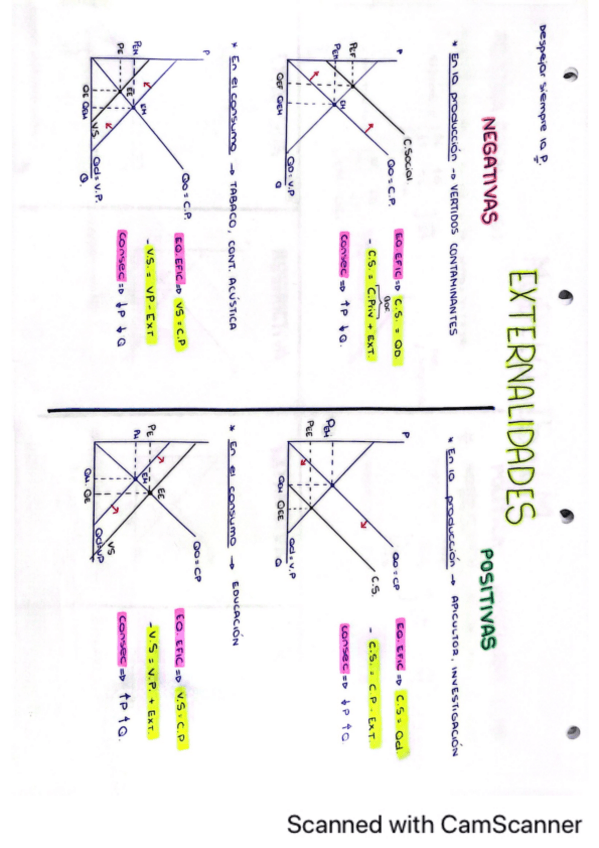 EXTERNALIDADES
Despejar siempre la P.
NEGATIVAS
* En la producción → VERTIDOS CONTAMINANTES
P
PEF
PEM
EM
QEF QEM
C.Social
Qo = C.P.
QD = V.P
Q
EQ. EFIC => C.S. = QD
- C.S. = C.Priv + EXT.
consec => ↑P ↓Q.
* En el consumo → TABACO, CONT. ACÚSTICA
P
PEM
PE
EM
EE
QE QEM
VS
Qo = C.P.
Qd = V.P.
Q.
EQ. EFIC => VS = C.P
- V.S. = VP - EXT
consec => ↓P ↓Q
POSITIVAS
* En la producción → APICULTOR, INVESTIGACIÓN
P
PEM
PEE
QEM QEE
Qo = CP
C.S.
Qd = V.P
Q
EQ. EFIC => C.S = Qd.
- C.S. = C.P - EXT.
consec => ↓P ↑Q.
* En el consumo → EDUCACIÓN
PE
PM
EE
EM
QM QE
Qo = CP
VS
Qd = VP
EQ. EFIC => V.S = C.P
- V.S = V.P. + EXT.
consec => ↑P ↑Q.
Scanned with CamScanner